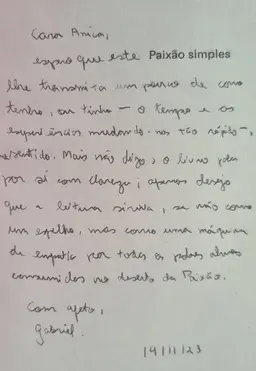 Cara Anica,
espero que este Paixão simples
lhe transmita um pouco de como
tenho, ou tinha — o tempo e as
experiências mudando-nos tão rápido —,
sentido. Mais não digo, o livro fala
por si com clareza; apenas desejo
que a leitura sirva, se não como
um espelho, mas como uma máquina
de empatia por todas as pobres almas
consumidas no deserto da Paixão.
Com afeto,
Gabriel.
19/11/23